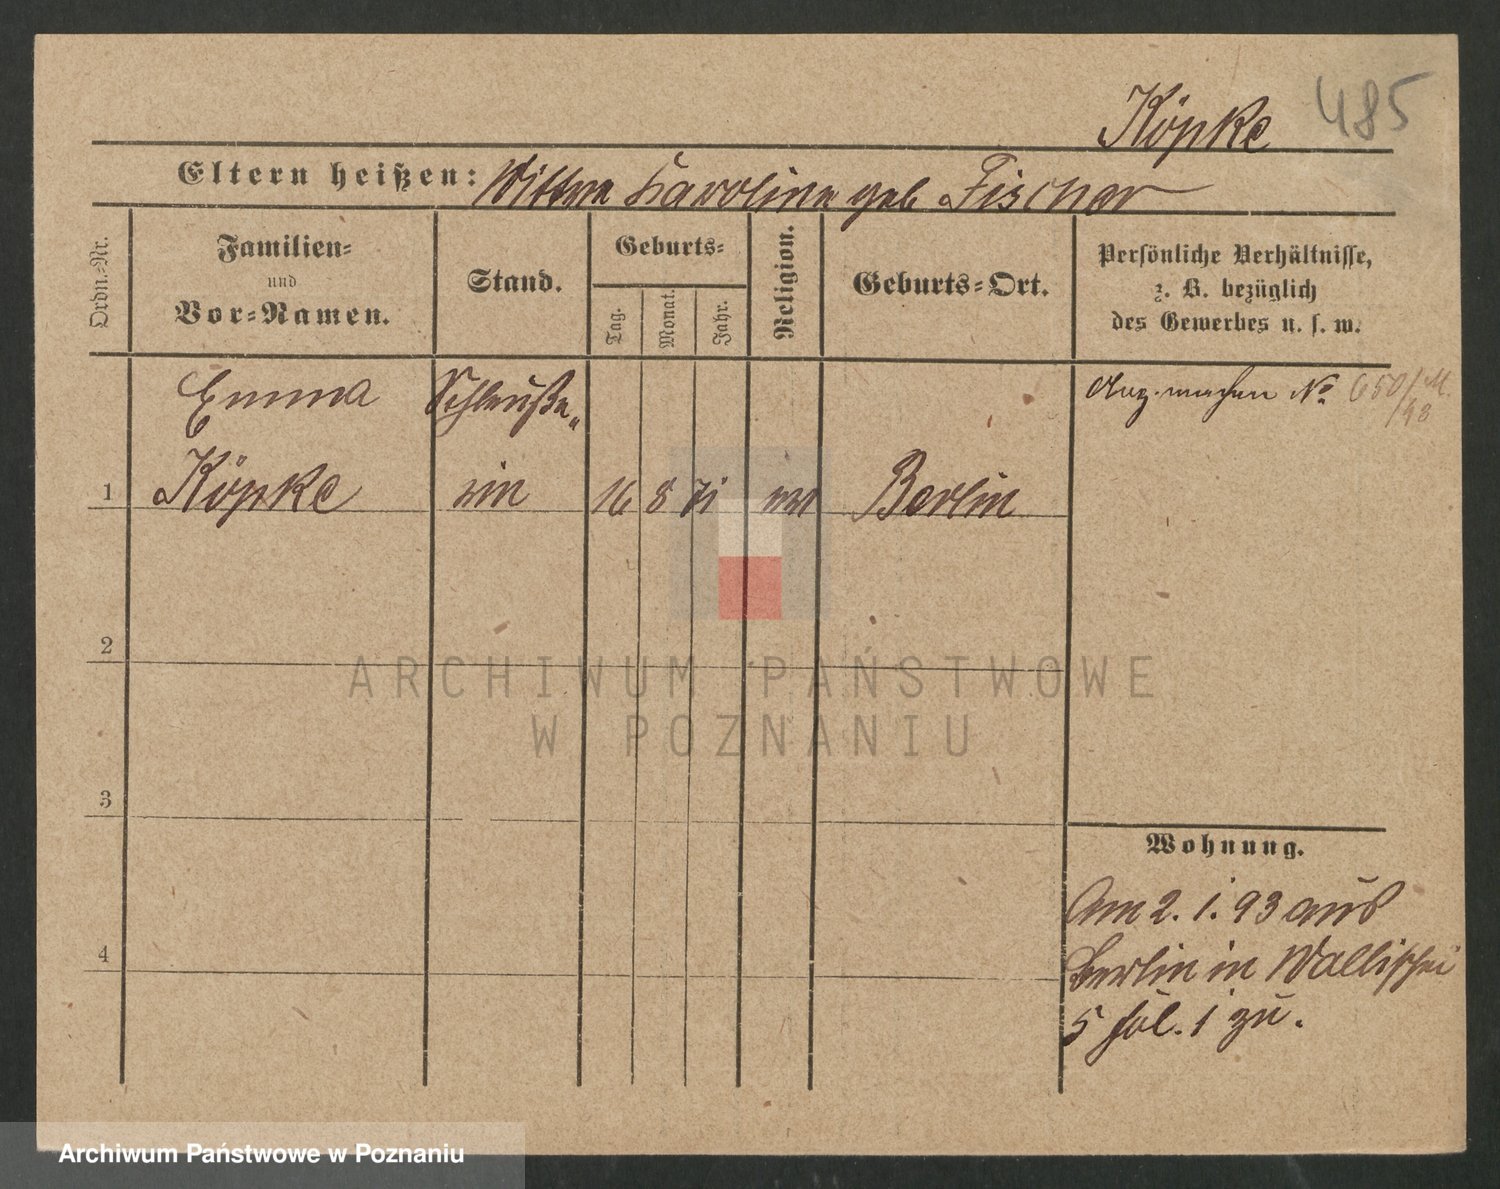 485
Köpke
Eltern heißen: Wittwe Karoline geb Fischer
Ordn.-Nr.
Familien-
und
Vor-Namen.
Stand.
Geburts-
Tag.
Monat.
Jahr.
Religion.
Geburts-Ort.
Persönliche Verhältnisse,
z. B. bezüglich
des Gewerbes u. s. w.
Emma
Köpke
1
16 8 71
Berlin
No 650/M.
/93
2
3
4
Wohnung.
Am 2. 1. 93 aus
Berlin in Wallischei
5 1 zu.
ARCHIWUM PAŃSTWOWE
W POZNANIU
Archiwum Państwowe w Poznaniu